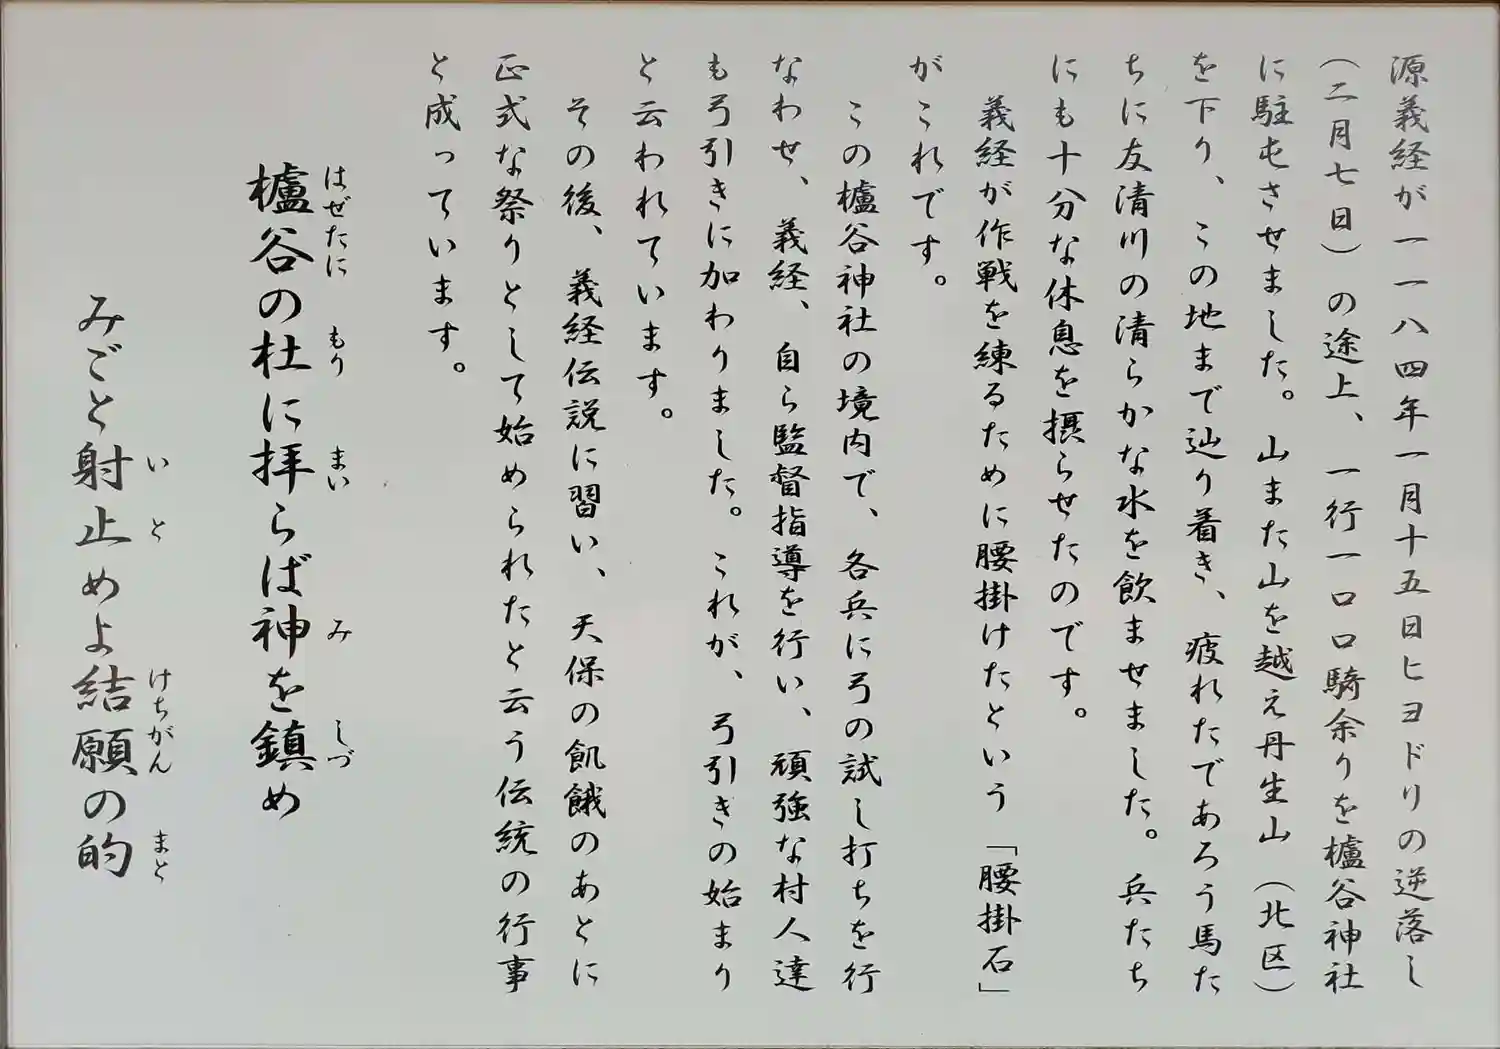 源義経が一一八四年一月十五日ヒヨドリの逆落し
（二月七日）の途上、一行一〇〇騎余りを櫨谷神社
に駐屯させました。山また山を越え丹生山（北区）
を下り、この地まで辿り着き、疲れたであろう馬た
ちに友清川の清らかな水を飲ませました。兵たち
にも十分な休息を摂らせたのです。
義経が作戦を練るために腰掛けたという「腰掛石」
がこれです。
この櫨谷神社の境内で、各兵に弓の試し打ちを行
なわせ、義経、自ら監督指導を行い、頑強な村人達
も弓引きに加わりました。これが、弓引きの始まり
と云われています。
その後、義経伝説に習い、天保の飢餓のあとに
正式な祭りとして始められたと云う伝統の行事
と成っています。
櫨谷の杜に拝らば神を鎮め
はぜたに もり まい み しづ
みごと射止めよ結願の的
い と けちがん まと